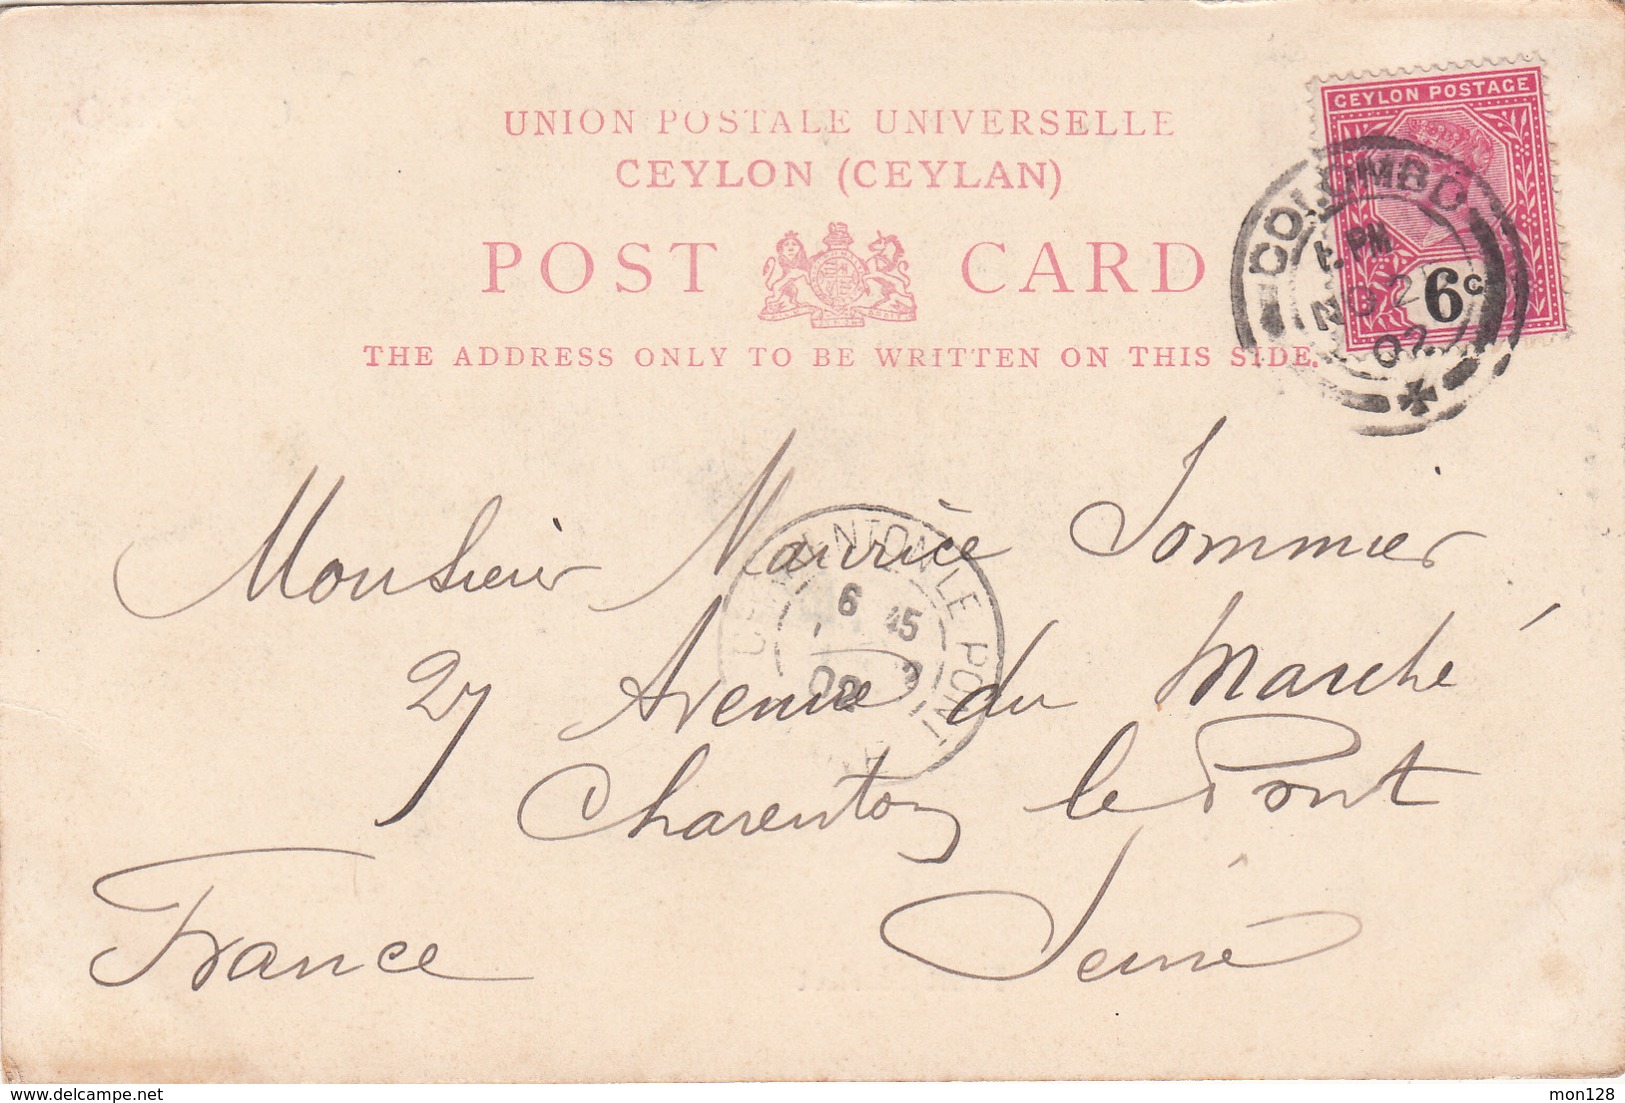 UNION POSTALE UNIVERSELLE
CEYLON (CEYLAN)
POST CARD
THE ADDRESS ONLY TO BE WRITTEN ON THIS SIDE.
CEYLON POSTAGE
6c
COLOMBO
PM
NO 2
02
Monsieur Maurice Sommier
27 Avenue du Marché
Charenton le Pont
Seine
France
CHARENTON LE PONT
6 15
02
mon128